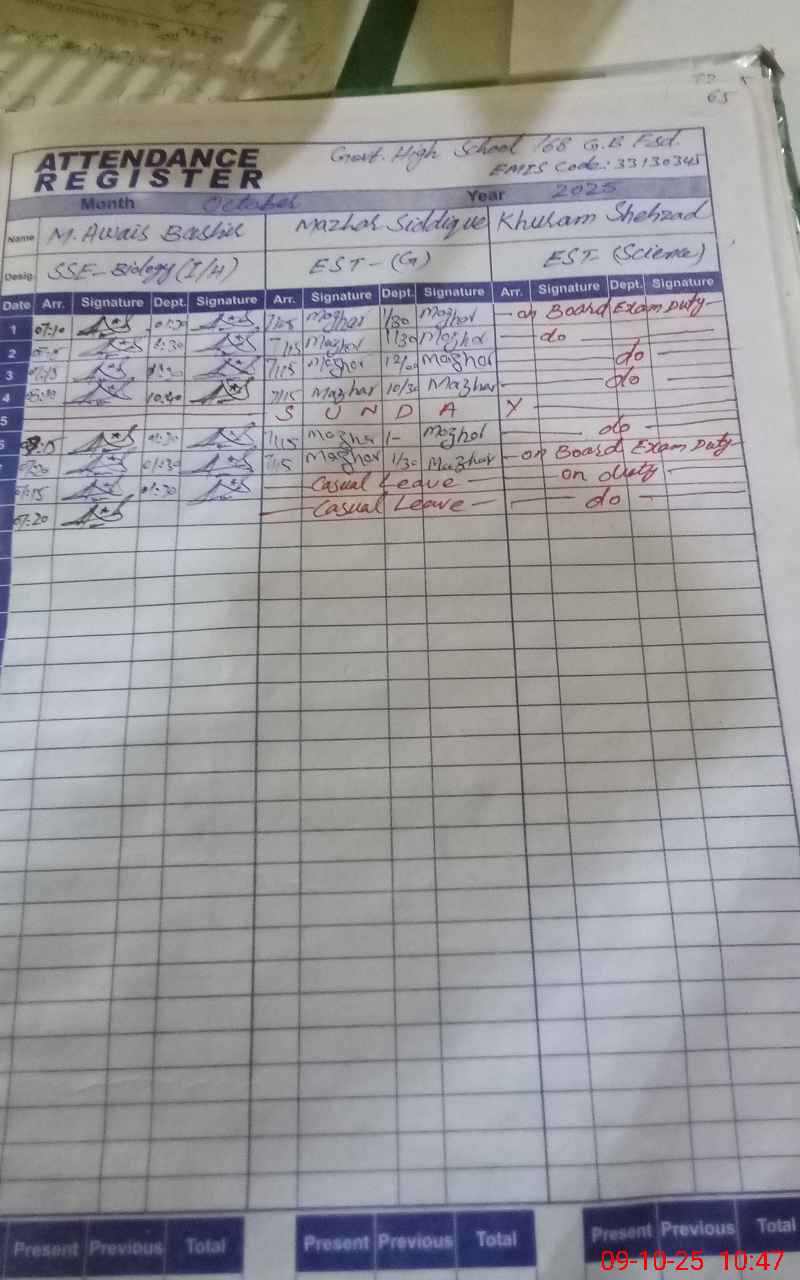 65
ATTENDANCE
REGISTER
Govt. High School 168 G.B Fsd.
EMIS Code: 33130345
Month October Year 2025
Name M. Awais Bashir Mazhar Siddique Khuram Shehzad
Desig. SSE-Biology (I/H) EST-(G) EST (Science)
Date Arr. Signature Dept. Signature Arr. Signature Dept. Signature Arr. Signature Dept. Signature
1 07:10 7/15 Mazhar 1/30 Mazhar on Board Exam Duty
2 7/15 Mazhar 1/30 Mazhar do
3 7/15 Mazhar 12/00 Mazhar do
4 7/15 Mazhar 10/30 Mazhar do
5 S U N D A Y
6 07:15 01:30 7/15 Mazhar 1- Mazhar do
01:30 7/15 Mazhar 1/30 Mazhar on Board Exam Duty
07:15 01:30 Casual Leave on duty
07:20 Casual Leave do
Present Previous Total Present Previous Total Present Previous Total
09-10-25 10:47